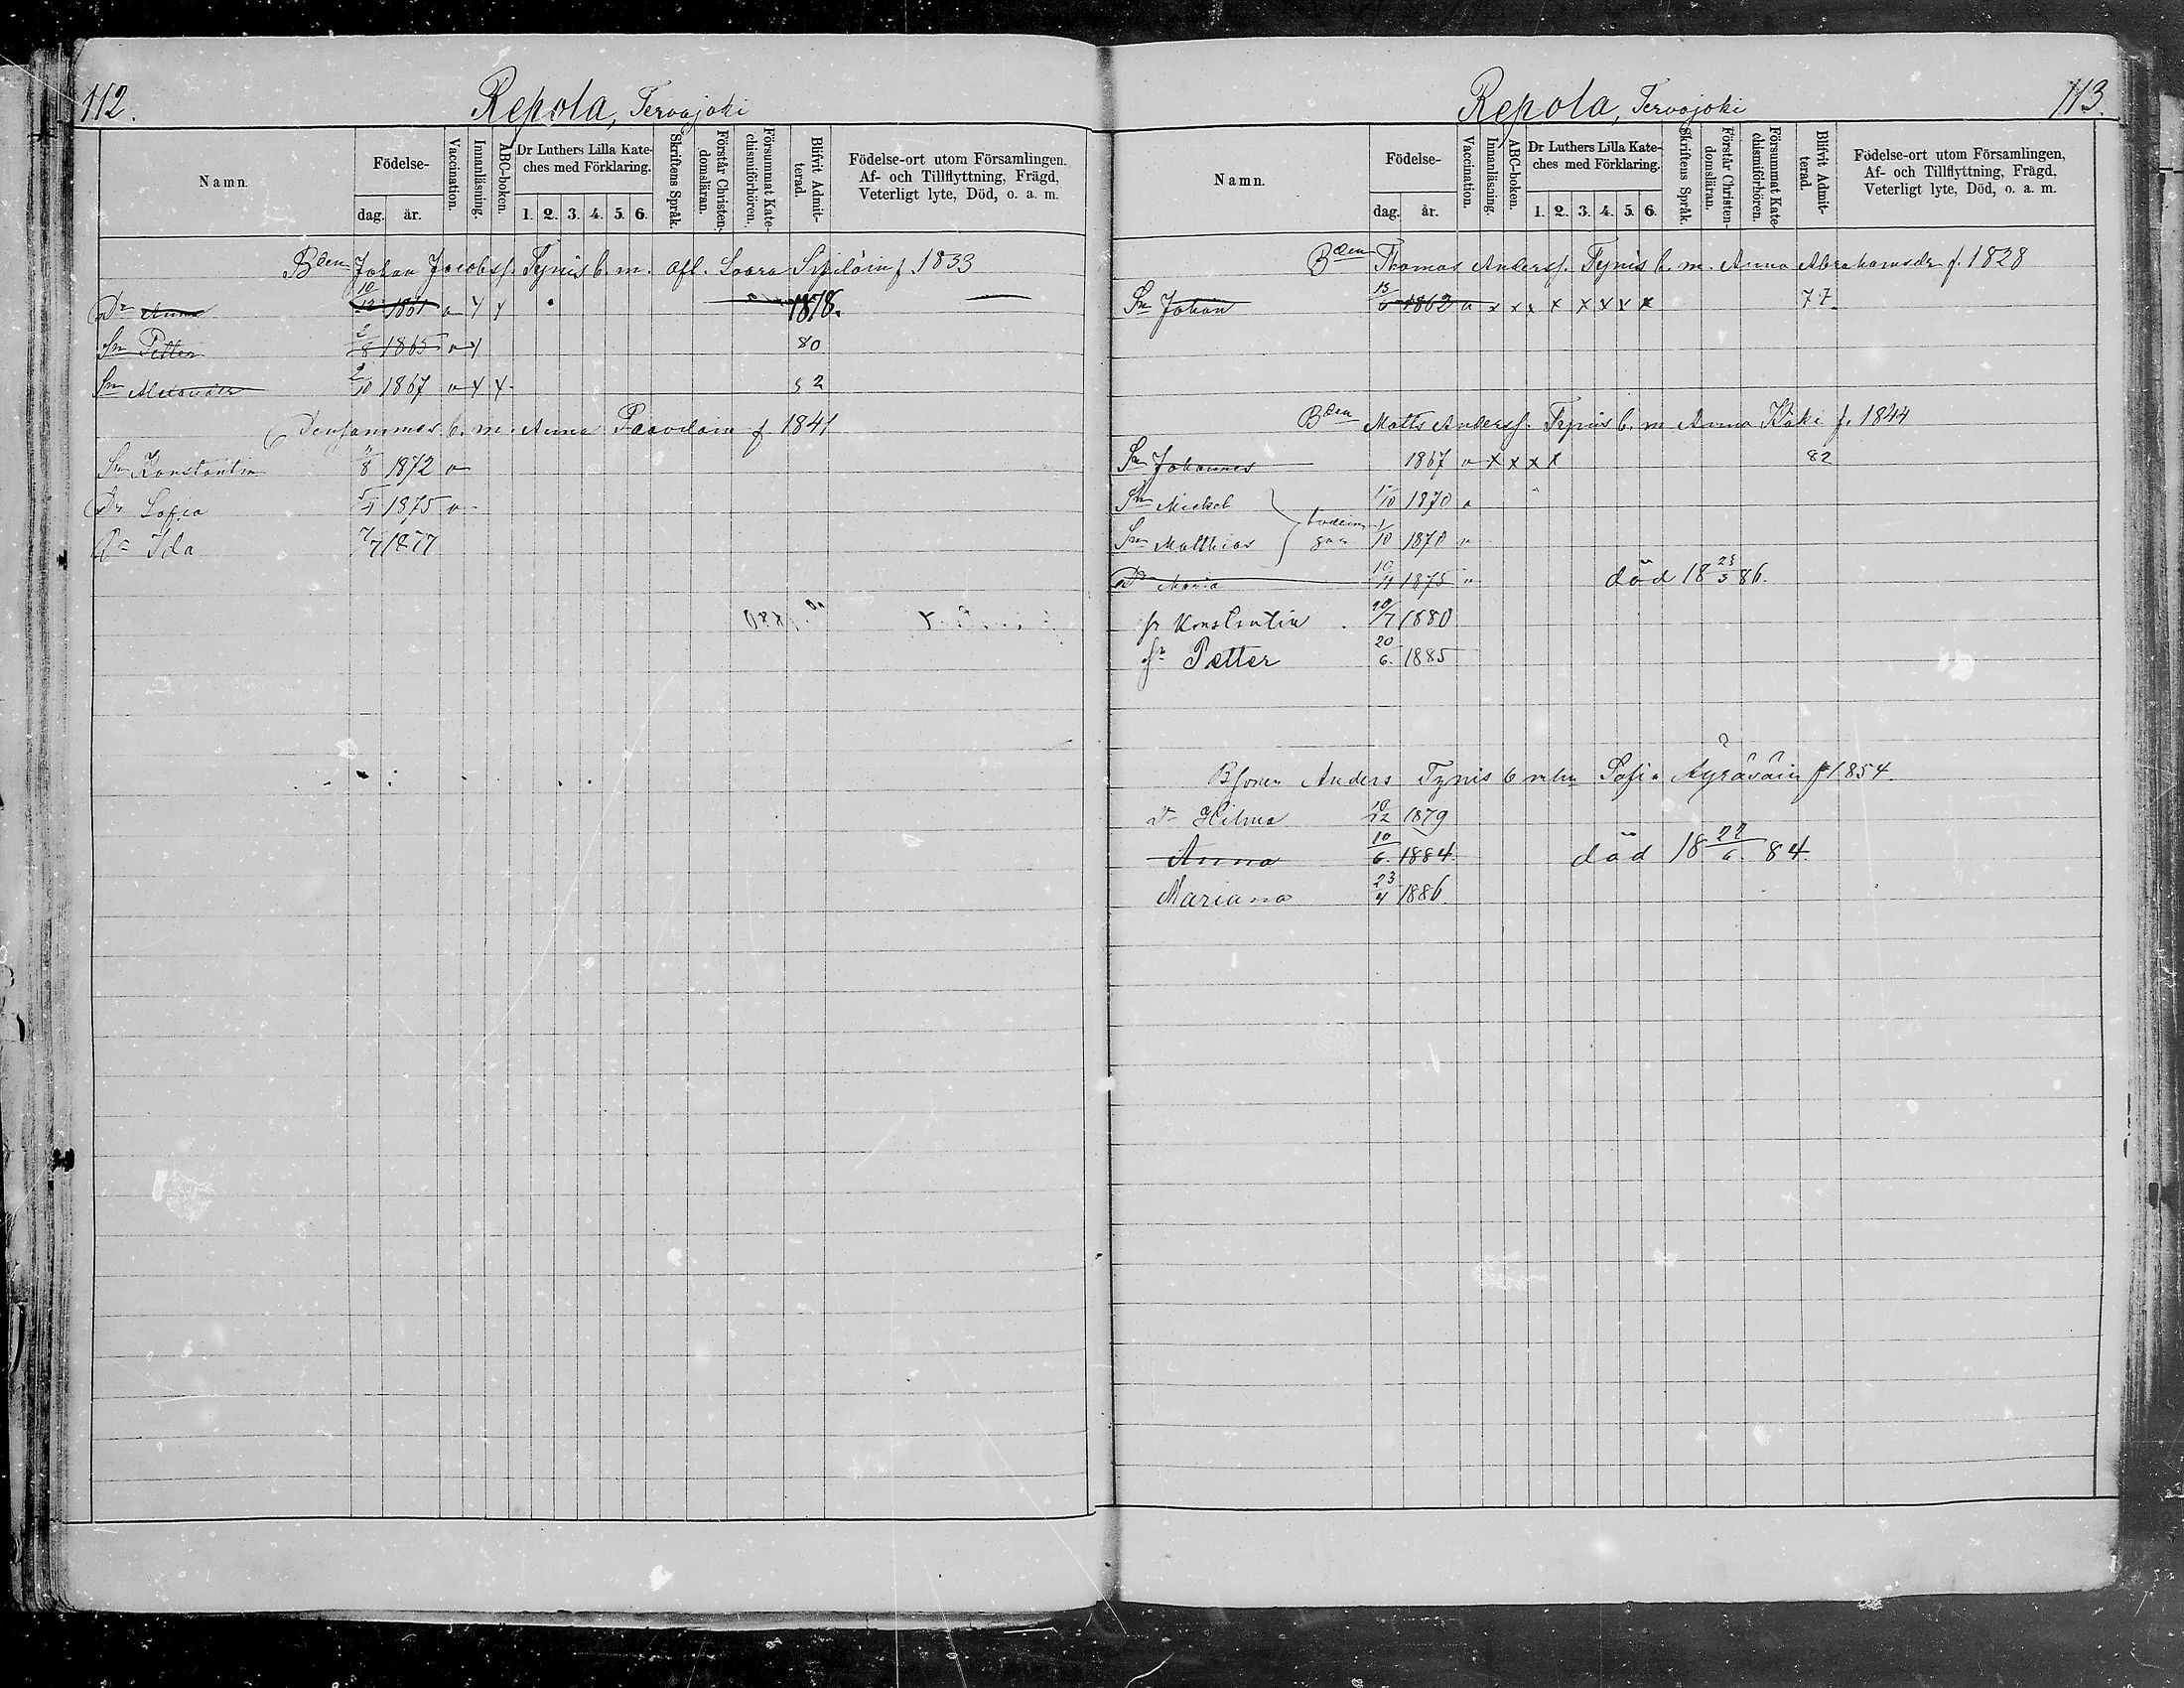 112.
Repola, Tervajoki
Namn.
Födelse-
dag.
år.
Vaccination.
Innanläsning.
ABC-boken.
Dr Luthers Lilla Kate-
ches med Förklaring.
1. 2. 3. 4. 5. 6.
Skriftens Språk.
Förstår Christen-
domsläran.
Försummat Kate-
chismiförhören.
Blifvit Admit-
terad.
Födelse-ort utom Församlingen,
Af- och Tillflyttning, Frägd,
Veterligt lyte, Död, o. a. m.
Bden Johan Jacobsf. Tynis b. m. afl. Saara f. 1833
Dr Anna 10/12 1861 1878.
Sn Petter 2/8 1865 80
Sn Alexander 2/10 1867 82
Densammes b. m. Anna Paavilain f. 1841
Sn Konstantin /8 1872
Dr Sofia 1875
Dr Ida 7/7 1877
113.
Repola, Tervajoki
Namn.
Födelse-
dag.
år.
Vaccination.
Innanläsning.
ABC-boken.
Dr Luthers Lilla Kate-
ches med Förklaring.
1. 2. 3. 4. 5. 6.
Skriftens Språk.
Förstår Christen-
domsläran.
Försummat Kate-
chismiförhören.
Blifvit Admit-
terad.
Födelse-ort utom Församlingen,
Af- och Tillflyttning, Frägd,
Veterligt lyte, Död, o. a. m.
Bden Thomas Andersf. Tynis b. m. Anna Abrahamsdr f. 1828
Sn Johan 15/6 1862 a x x x x x x x x 77.
Bden Matts Andersf. Tynis b. m. Anna Käki f. 1844
Sn Johannes 1867 x x x x 82
Sn Mickel /10 1870
Sn Matthias 1/10 1870
Dr Maria 10/4 1875 död 18 23/5 86.
Sn Konstantin 20/7 1880
Sn Petter 20/6. 1885
Bsonen Anders Tynis b m hu Sofia Äyräväin f 1854.
Dr Hilma 10/12 1879
Anna 10/6. 1884. död 18 22/6. 84.
Mariana 23/4 1886.